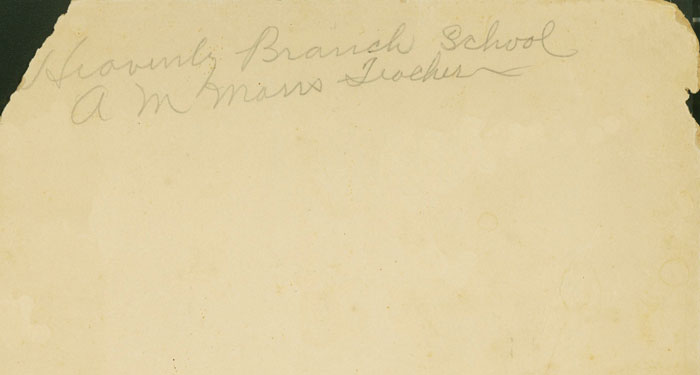 Heavenly Branch School
A M Mans Teacher